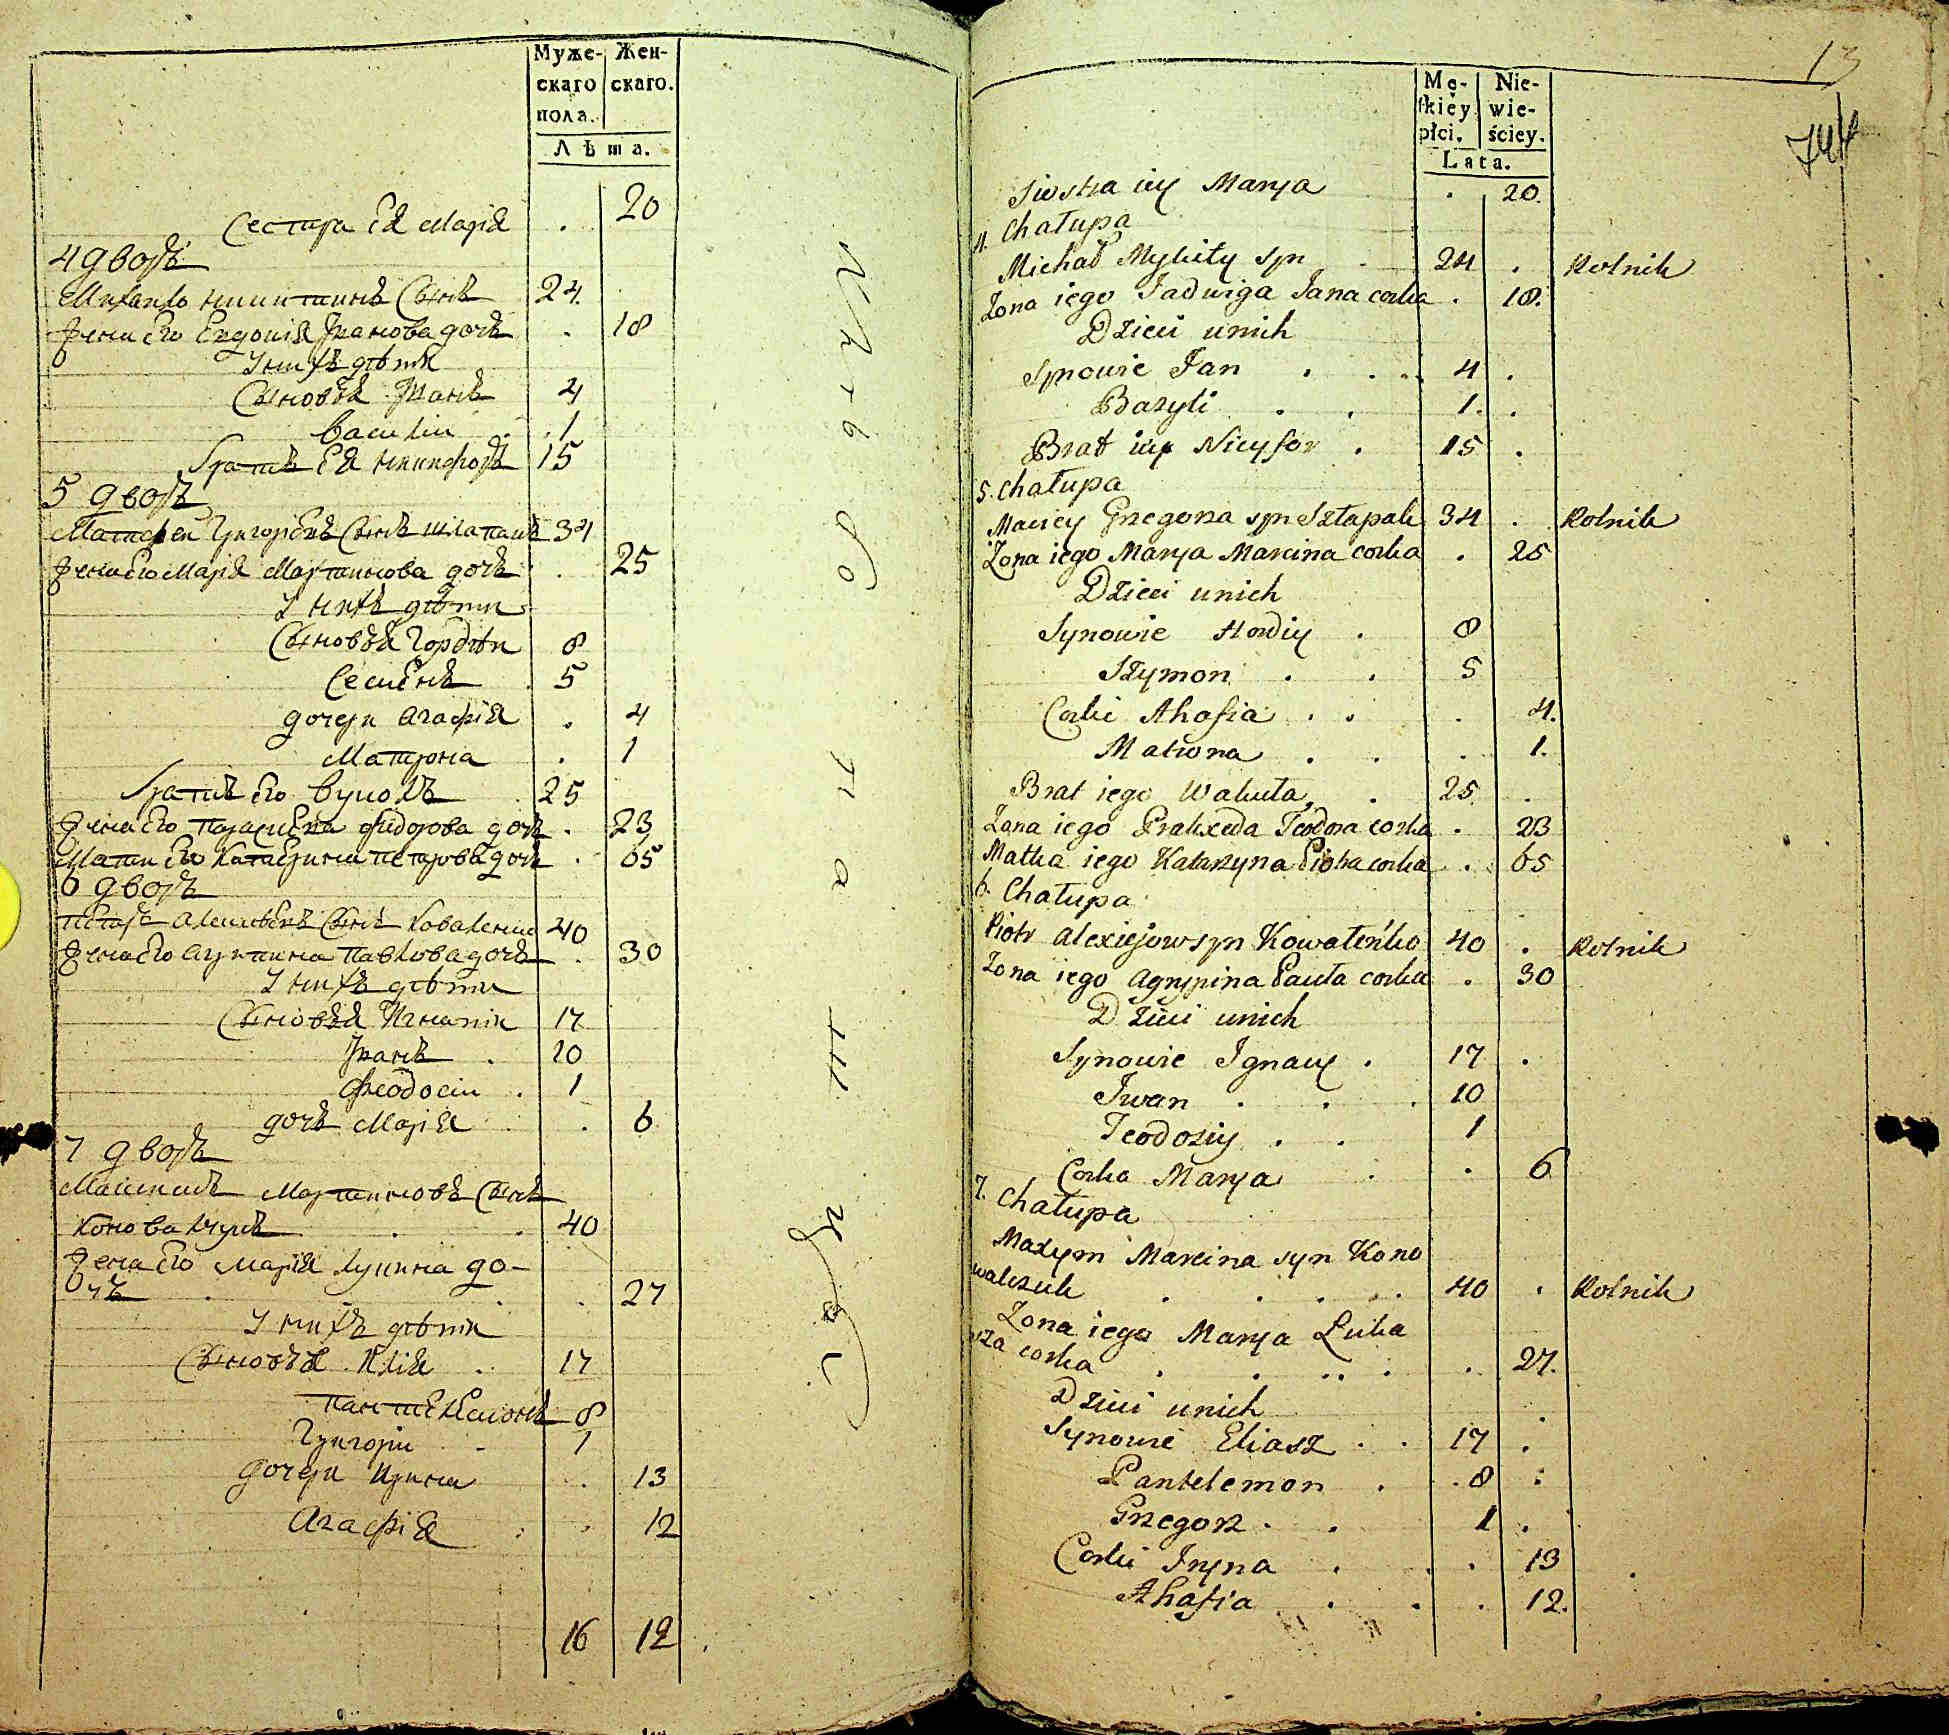 Муже-
скаго
пола.
Жен-
скаго.
Лѣта.
Сестра Ея Марія . 20
4 дворъ
Михайло Никитинъ Сынъ 24.
Жена Его Евдокія Иванова дочь . 18
У нихъ дѣти
Сыновья Иванъ 4
Василій . 1
Братъ Ея Никифоръ 15
5 дворъ
Матфей Григорьевъ Сынъ Шлапакъ 34
Жена Его Марія Мартинова дочь . 25
У нихъ дѣти
Сыновья Гордѣй 8
Семенъ . 5
дочери Агафія . 4
Матрона . 1
Братъ Его Вуколъ . 25
Жена Его Параскева Фидорова дочь . 23
Мати Его Катерина Петрова дочь . 65
6 дворъ
Петръ Алексѣевъ Сынъ Коваленко 40
Жена Его Агрипина Павлова дочь . 30
У нихъ дѣти
Сыновья Игнатій 17
Иванъ . 10
Феодосій . 1
дочь Марія . 6
7 дворъ
Максимъ Мартиновъ Сынъ
Коновалчукъ . . 40
Жена Его Марія Лукина до-
очь . . . 27
У нихъ дѣти
Сыновья Илія . 17
Пантелемонъ 8
Григорій - 1
дочери Ирина . 13
Агафія . . 12
16 12 .
13
744
Męſkiey
płci.
Niewieściey.
Lata.
Siostra iey Marya . 20.
4. Chałupa
Michał Mykity syn . 24 . Rolnik
Zona iego Jadwiga Jana corka . 18.
Dzieci u nich
Synowie Jan . . . 4 .
Bazyli . . 1. .
Brat iey Nicyfor . 15 .
5. Chałupa
Maciey Grzegorza syn Szłapak 34 . Rolnik
Żona iego Marya Marcina corka . 25
Dzieci u nich
Synowie Hordiy . 8
Szymon . . 5
Corki Ahafia . . . 4.
Matrona . . . 1.
Brat iego Wakuła . 25 .
Zona iego Prakxeda Teodora corka . 23
Matka iego Katarzyna Piotra corka . 65
6. Chałupa
Piotr Alexiejow syn Kowaleńko 40 . Rolnik
Zona iego Agrypina Pawła corka . 30
Dzieci u nich
Synowie Ignacy . 17 .
Iwan . . . 10
Teodoziy . . 1
Corka Marya . . 6
7. Chałupa
Maxym Marcina syn Kono
walczuk . . . . . 40 . Rolnik
Zona iego Marya Łuka
sza corka . . . . . . 27.
Dzieci u nich
Synowie Eliasz . . 17 .
Pantelemon . . 8 .
Grzegorz . . 1 .
Corki Iryna . . . 13
Ahafia . . . 12.